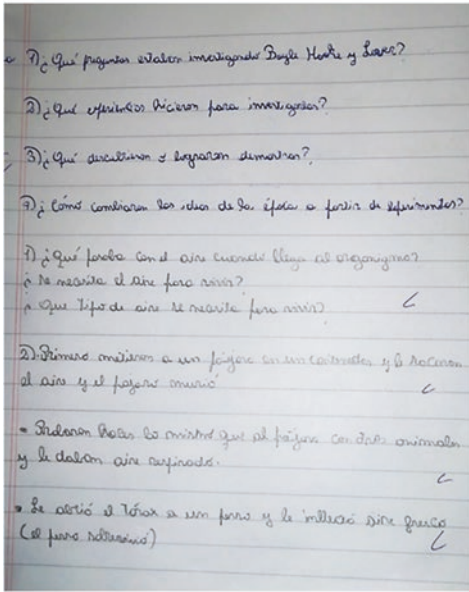 1) ¿Qué preguntas estaban investigando Boyle Hooke y Lower?
2) ¿Qué experimentos hicieron para investigarlas?
3) ¿Qué descubrieron y lograron demostrar?
4) ¿Cómo cambiaron las ideas de la época a partir de experimentos?
1) ¿Qué pasaba con el aire cuando llega al organigmo?
¿se necesita el aire para vivir?
¿Que tipo de aire se necesita para vivir?
2). Primero metieron a un pájaro en un y le sacaron
el aire y el pájaro murió
• hacer lo mismo que al pájaro con animales
y le daban aire respirado.
• Se abrió el tórax a un perro y le aire
(el perro)